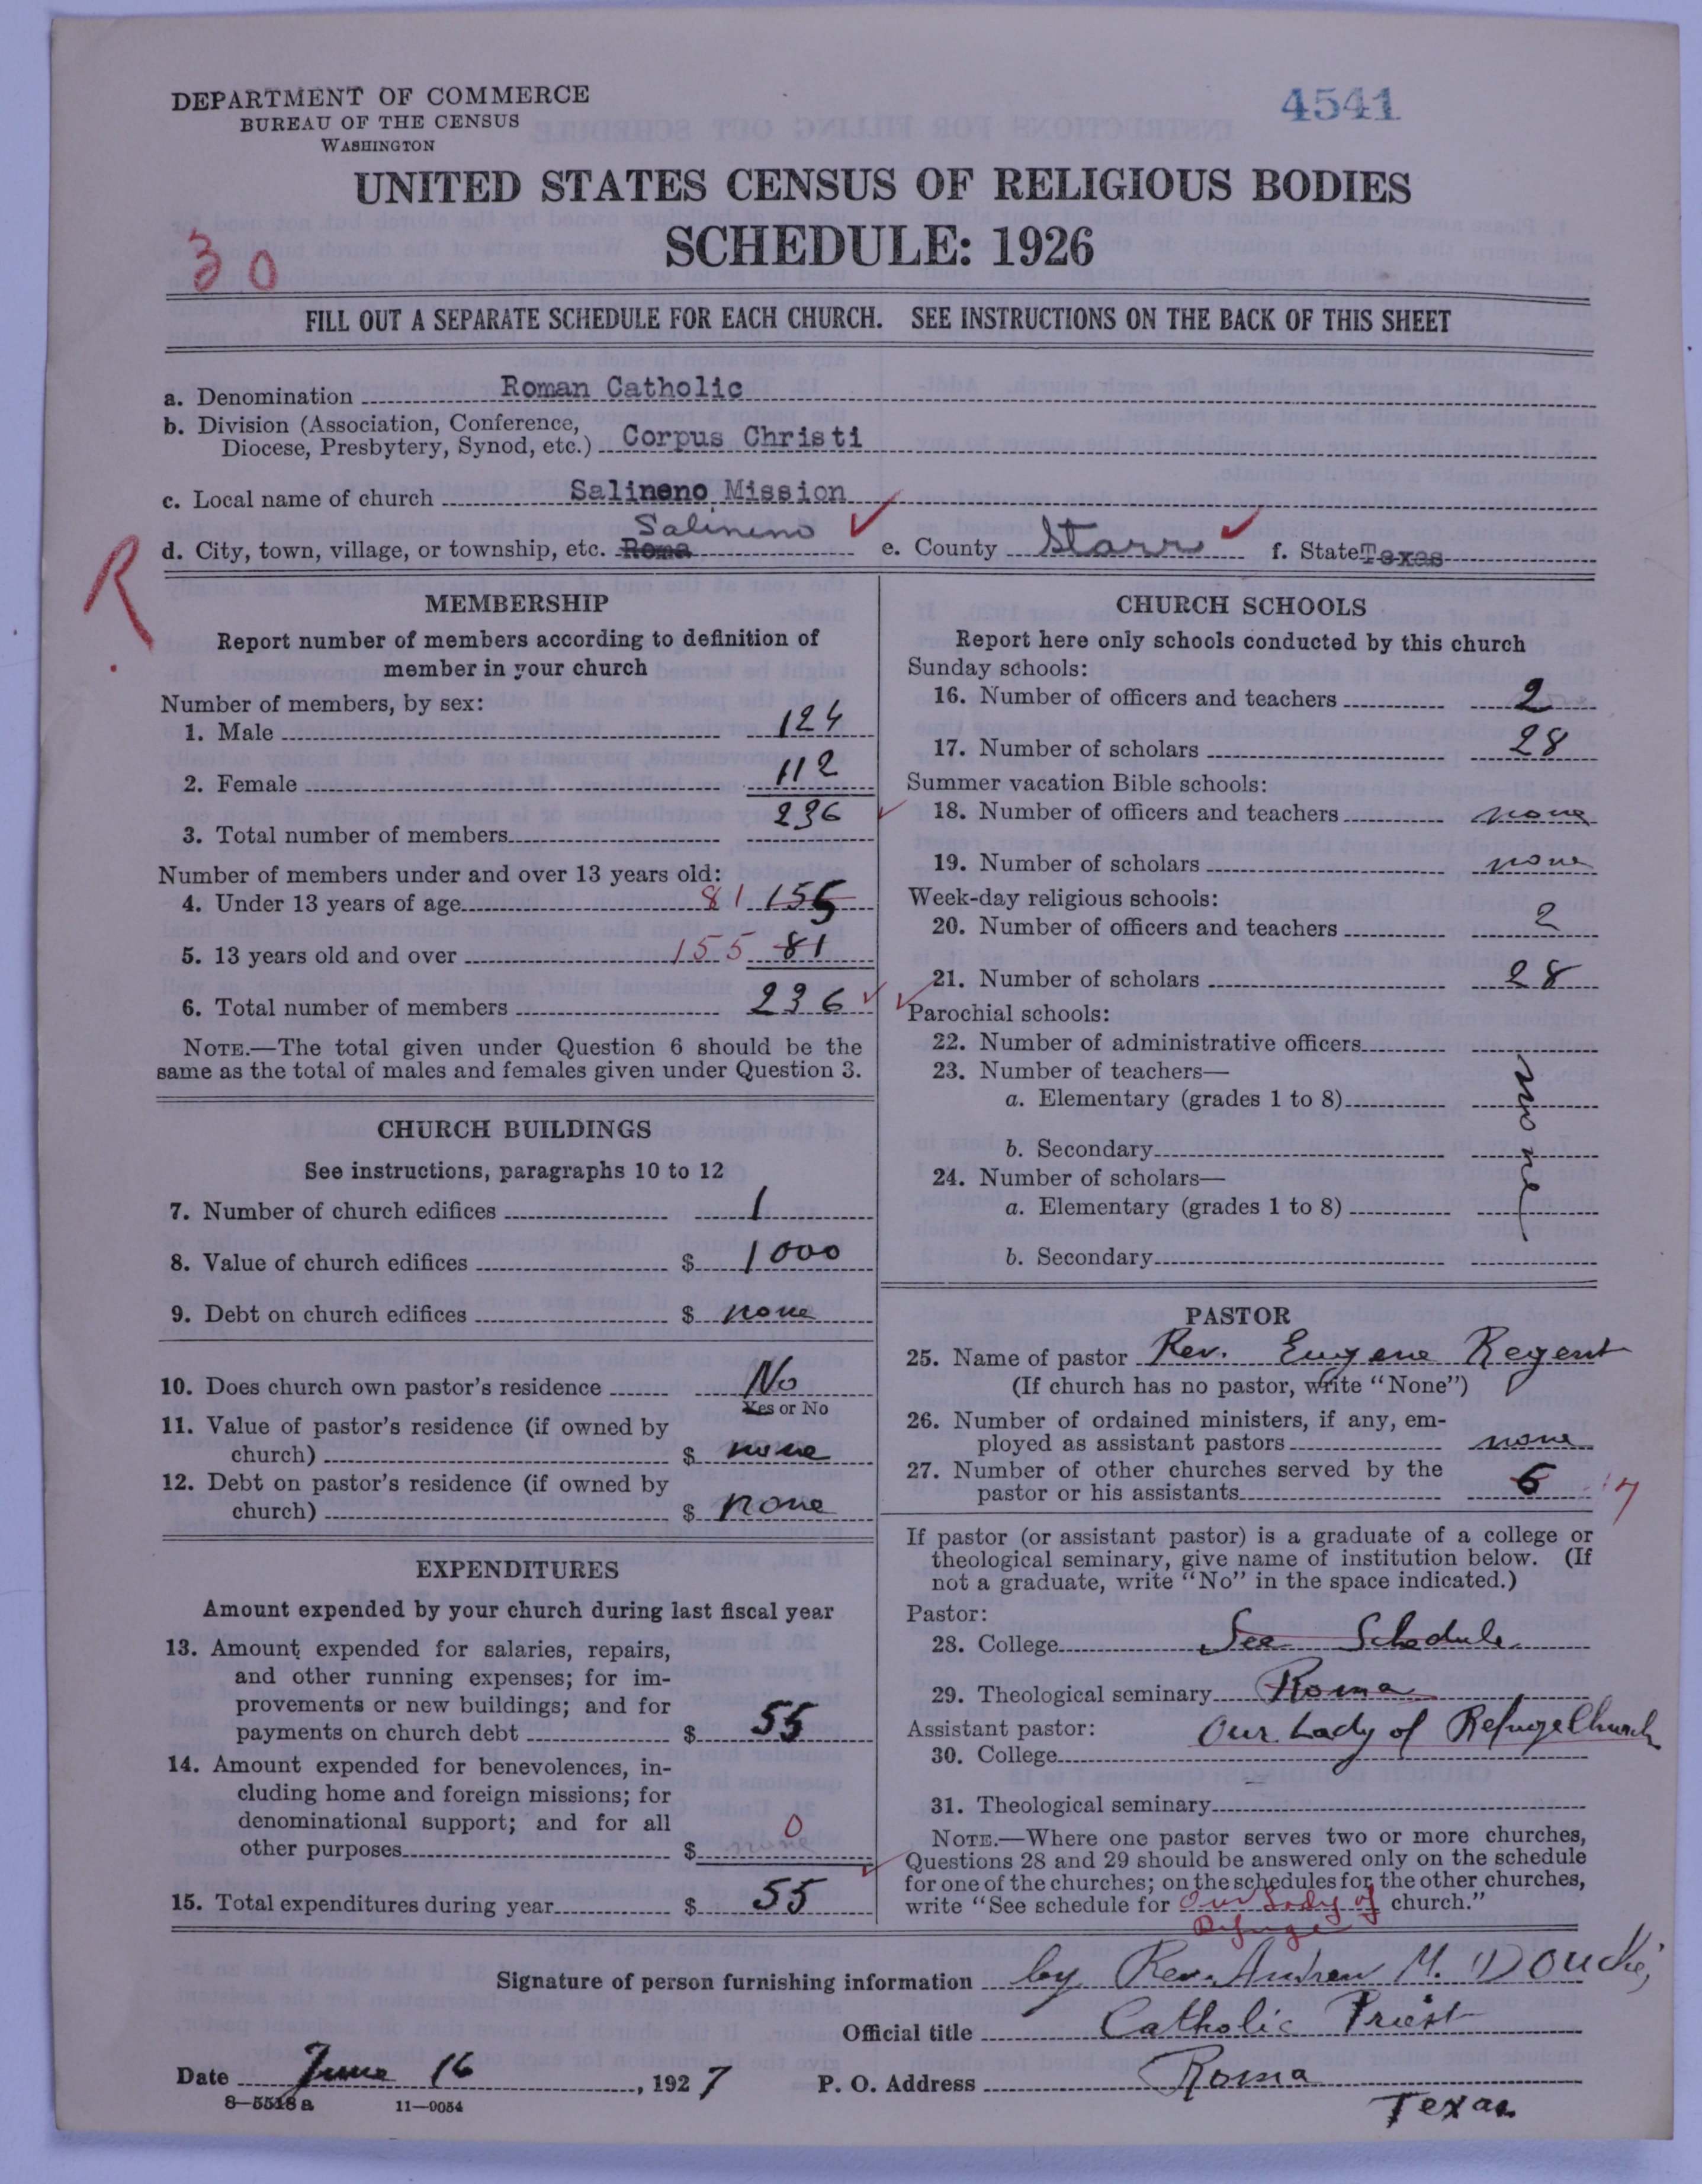 DEPARTMENT OF COMMERCE
BUREAU OF THE CENSUS
WASHINGTON
4541
UNITED STATES CENSUS OF RELIGIOUS BODIES
SCHEDULE: 1926
30
FILL OUT A SEPARATE SCHEDULE FOR EACH CHURCH. SEE INSTRUCTIONS ON THE BACK OF THIS SHEET
a. Denomination Roman Catholic
b. Division (Association, Conference,
Diocese, Presbytery, Synod, etc.) Corpus Christi
c. Local name of church Salineno Mission
Salineno
d. City, town, village, or township, etc. Roma e. County Starr f. State Texas
R
MEMBERSHIP
Report number of members according to definition of
member in your church
Number of members, by sex:
1. Male 124
2. Female 112
3. Total number of members 236
Number of members under and over 13 years old:
4. Under 13 years of age 81 155
5. 13 years old and over 155 81
6. Total number of members 236
NOTE.—The total given under Question 6 should be the
same as the total of males and females given under Question 3.
CHURCH BUILDINGS
See instructions, paragraphs 10 to 12
7. Number of church edifices 1
8. Value of church edifices $ 1000
9. Debt on church edifices $ none
10. Does church own pastor's residence No
Yes or No
11. Value of pastor's residence (if owned by
church) $ none
12. Debt on pastor's residence (if owned by
church) $ none
EXPENDITURES
Amount expended by your church during last fiscal year
13. Amount expended for salaries, repairs,
and other running expenses; for im-
provements or new buildings; and for
payments on church debt $ 55
14. Amount expended for benevolences, in-
cluding home and foreign missions; for
denominational support; and for all
other purposes $ none 0
15. Total expenditures during year $ 55
CHURCH SCHOOLS
Report here only schools conducted by this church
Sunday schools:
16. Number of officers and teachers 2
17. Number of scholars 28
Summer vacation Bible schools:
18. Number of officers and teachers none
19. Number of scholars none
Week-day religious schools:
20. Number of officers and teachers 2
21. Number of scholars 28
Parochial schools:
22. Number of administrative officers
23. Number of teachers—
a. Elementary (grades 1 to 8)
none
b. Secondary
24. Number of scholars—
a. Elementary (grades 1 to 8)
b. Secondary
PASTOR
25. Name of pastor Rev. Eugene Regent
(If church has no pastor, write "None")
26. Number of ordained ministers, if any, em-
ployed as assistant pastors none
27. Number of other churches served by the
pastor or his assistants 6 7
If pastor (or assistant pastor) is a graduate of a college or
theological seminary, give name of institution below. (If
not a graduate, write "No" in the space indicated.)
Pastor:
28. College See Schedule
29. Theological seminary Roma
Assistant pastor: Our Lady of Refuge Church
30. College
31. Theological seminary
NOTE.—Where one pastor serves two or more churches,
Questions 28 and 29 should be answered only on the schedule
for one of the churches; on the schedules for the other churches,
write "See schedule for Our Lady of church."
Refuge
Signature of person furnishing information by Rev. Andrew M.
Official title Catholic Priest
Date June 16, 1927 P. O. Address Roma
Texas
8—5518 a 11—9054